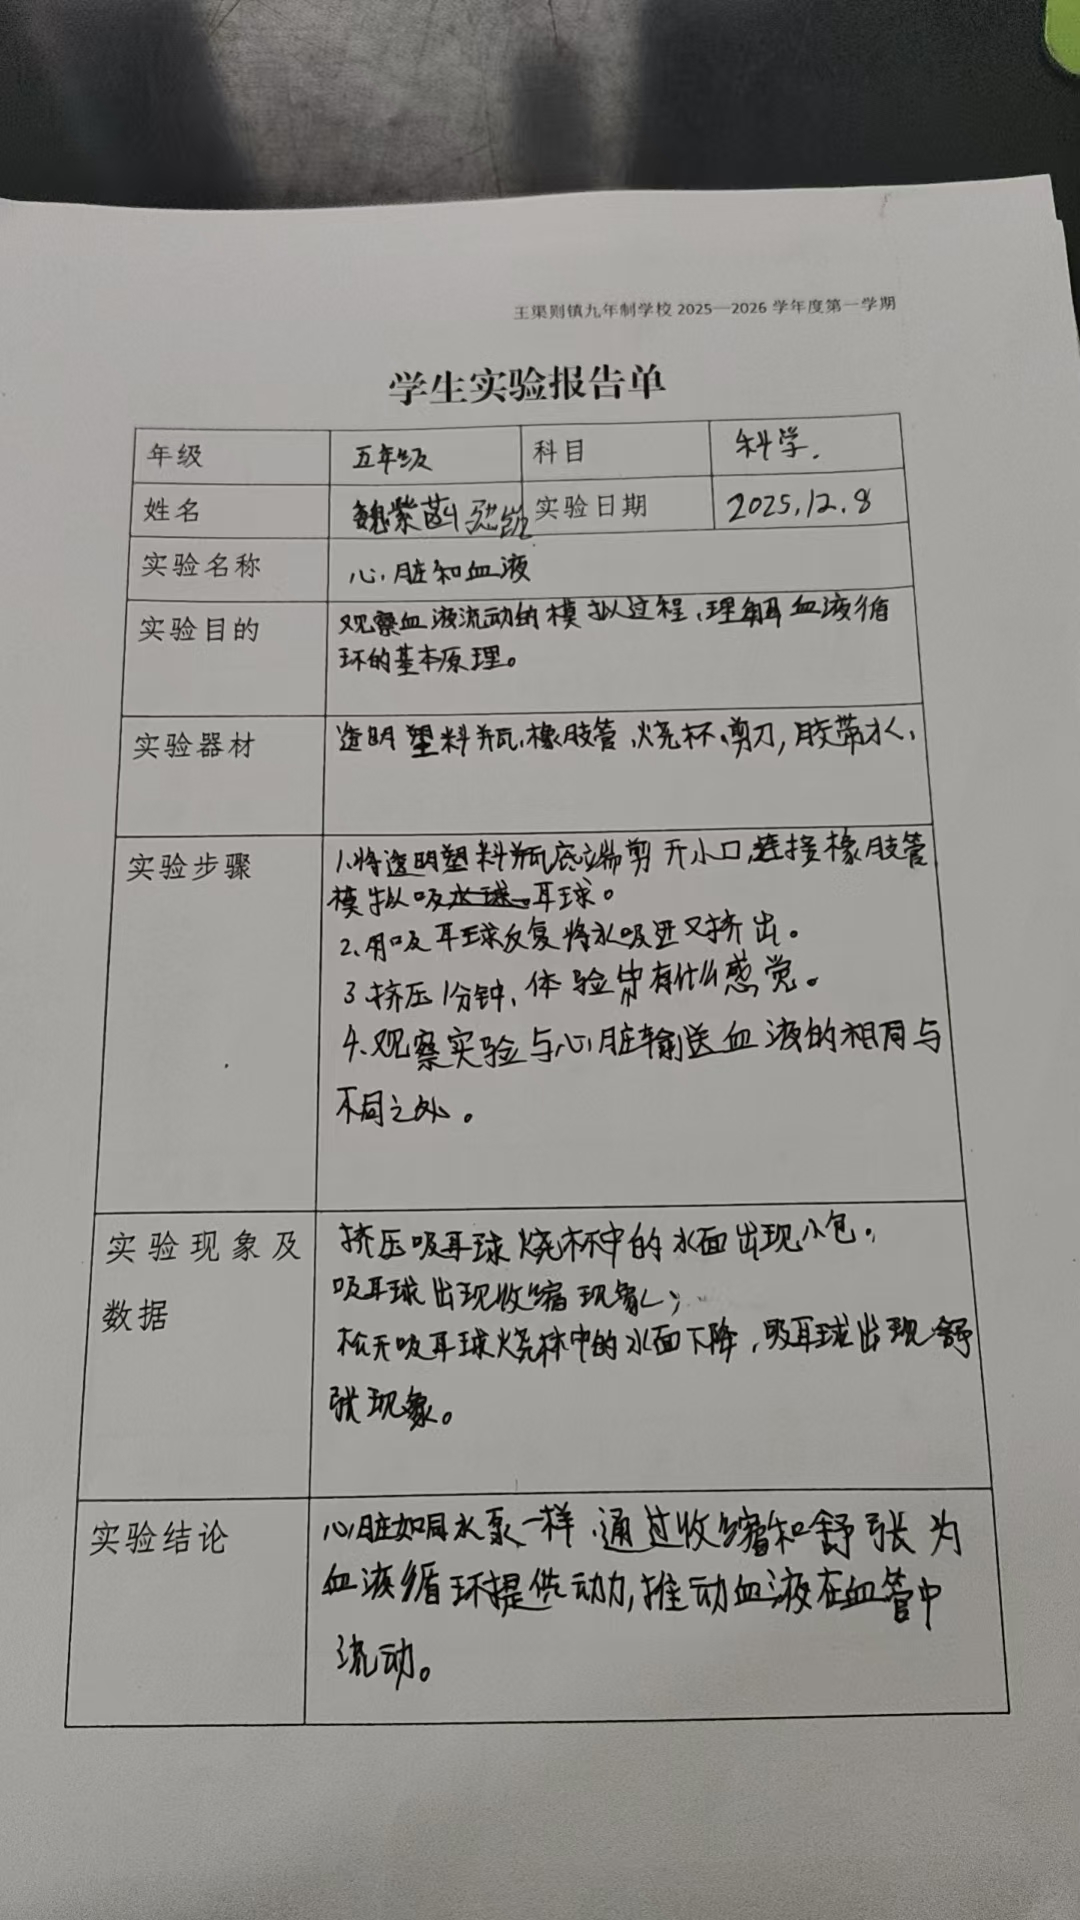 王渠则镇九年制学校 2025—2026 学年度第一学期
学生实验报告单
年级 五年级 科目 科学.
姓名 魏紫 实验日期 2025.12.8
实验名称 心脏和血液
实验目的 观察血液流动的模拟过程、理解血液循
环的基本原理。
实验器材 透明塑料瓶、橡胶管、烧杯、剪刀,胶带水、
实验步骤 1.将透明塑料瓶底端剪开小口,连接橡胶管
模拟吸耳球。
2.用吸耳球反复将水吸进又挤出。
3.挤压1分钟,体验有什么感觉。
4.观察实验与心脏输送血液的相同与
不同之处。
实验现象及 挤压吸耳球烧杯中的水面出现小包。
数据 吸耳球出现收缩现象;
松开吸耳球烧杯中的水面下降,吸耳球出现舒
张现象。
实验结论 心脏如同水泵一样、通过收缩和舒张为
血液循环提供动力,推动血液在血管中
流动。